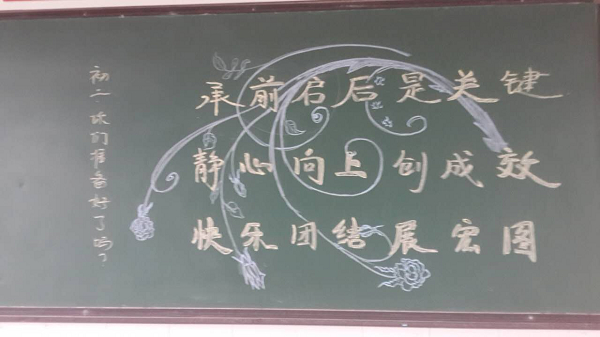 承前启后是关键
静心向上创成效
快乐团结展宏图
初二我们准备好了吗?